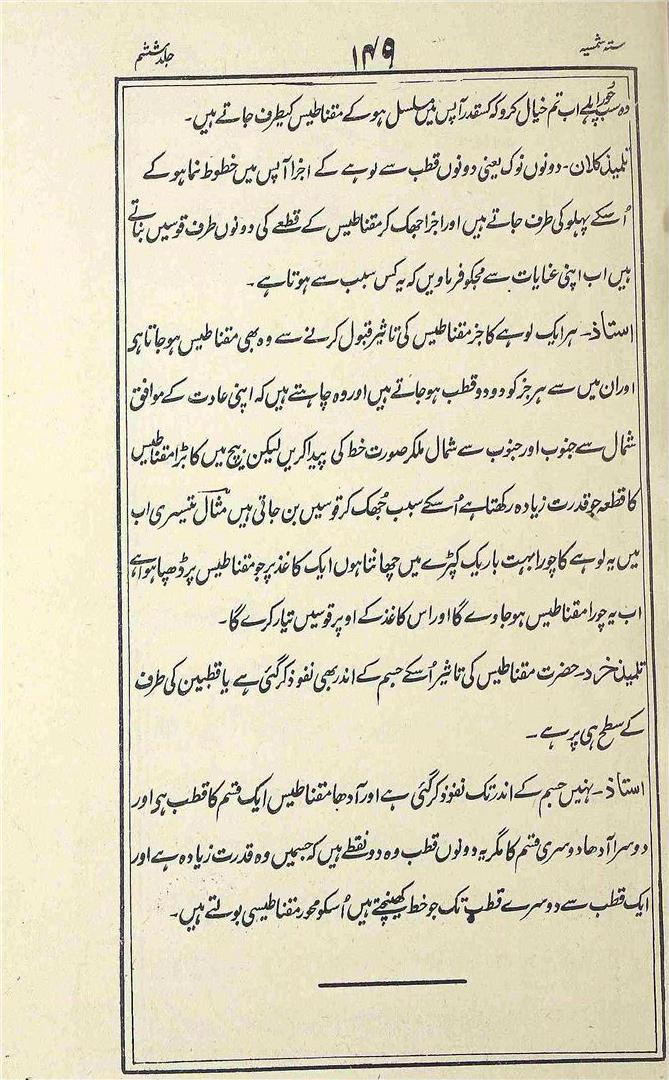 ستہ شمسیہ
۱۴۹
جلد ششم
وہ سب چورا ہلے اب تم خیال کرو کہ کسقدر آپس میں مسلسل ہو کے مقناطیس کیطرف جاتے ہیں۔
تلمیذ کلان۔ دونوں نوک یعنی دونوں قطب سے لوہے کے اجزا آپس میں خطوط نما ہو کے
اُسکے پہلو کی طرف جاتے ہیں اور اجزا جھک کر مقناطیس کے قطعے کی دونوں طرف قوسیں بناتے
ہیں اب اپنی عنایات سے مجکو فرماویں کہ یہ کس سبب سے ہوتا ہے۔
استاذ۔ ہر ایک لوہے کا جز مقناطیس کی تاثیر قبول کرنے سے وہ بھی مقناطیس ہو جاتا ہو
اور ان میں سے ہر جز کو دو دو قطب ہو جاتے ہیں اور وہ چاہتے ہیں کہ اپنی عادت کے موافق
شمال سے جنوب اور جنوب سے شمال ملکر صورت خط کی پیدا کریں لیکن بیچ میں کا بڑا مقناطیس
کا قطعہ جو قدرت زیادہ رکھتا ہے اُسکے سبب جُھک کر قوسیں بن جاتی ہیں مثال تیسری اب
میں یہ لوہے کا چورا بہت باریک کپڑے میں چھانتا ہوں ایک کاغذ پر جو مقناطیس پر ڈھپا ہوا ہے
اب یہ چورا مقناطیس ہو جاوے گا اور اس کاغذ کے اوپر قوسیں تیار کرے گا۔
تلمیذ خرد۔ حضرت مقناطیس کی تاثیر اُسکے جسم کے اندر بھی نفوذ کر گئی ہے یا قطبین کی طرف
کے سطح ہی پر ہے۔
استاذ۔ نہیں جسم کے اندر تک نفوذ کر گئی ہے اور آدھا مقناطیس ایک قسم کا قطب ہو اور
دوسرا آدھا دوسری قسم کا مگر یہ دونوں قطب وہ دو نقطے ہیں کہ جسمیں وہ قدرت زیادہ ہے اور
ایک قطب سے دوسرے قطب تک جو خط کھینچتے ہیں اُسکو محور مقناطیسی بولتے ہیں۔